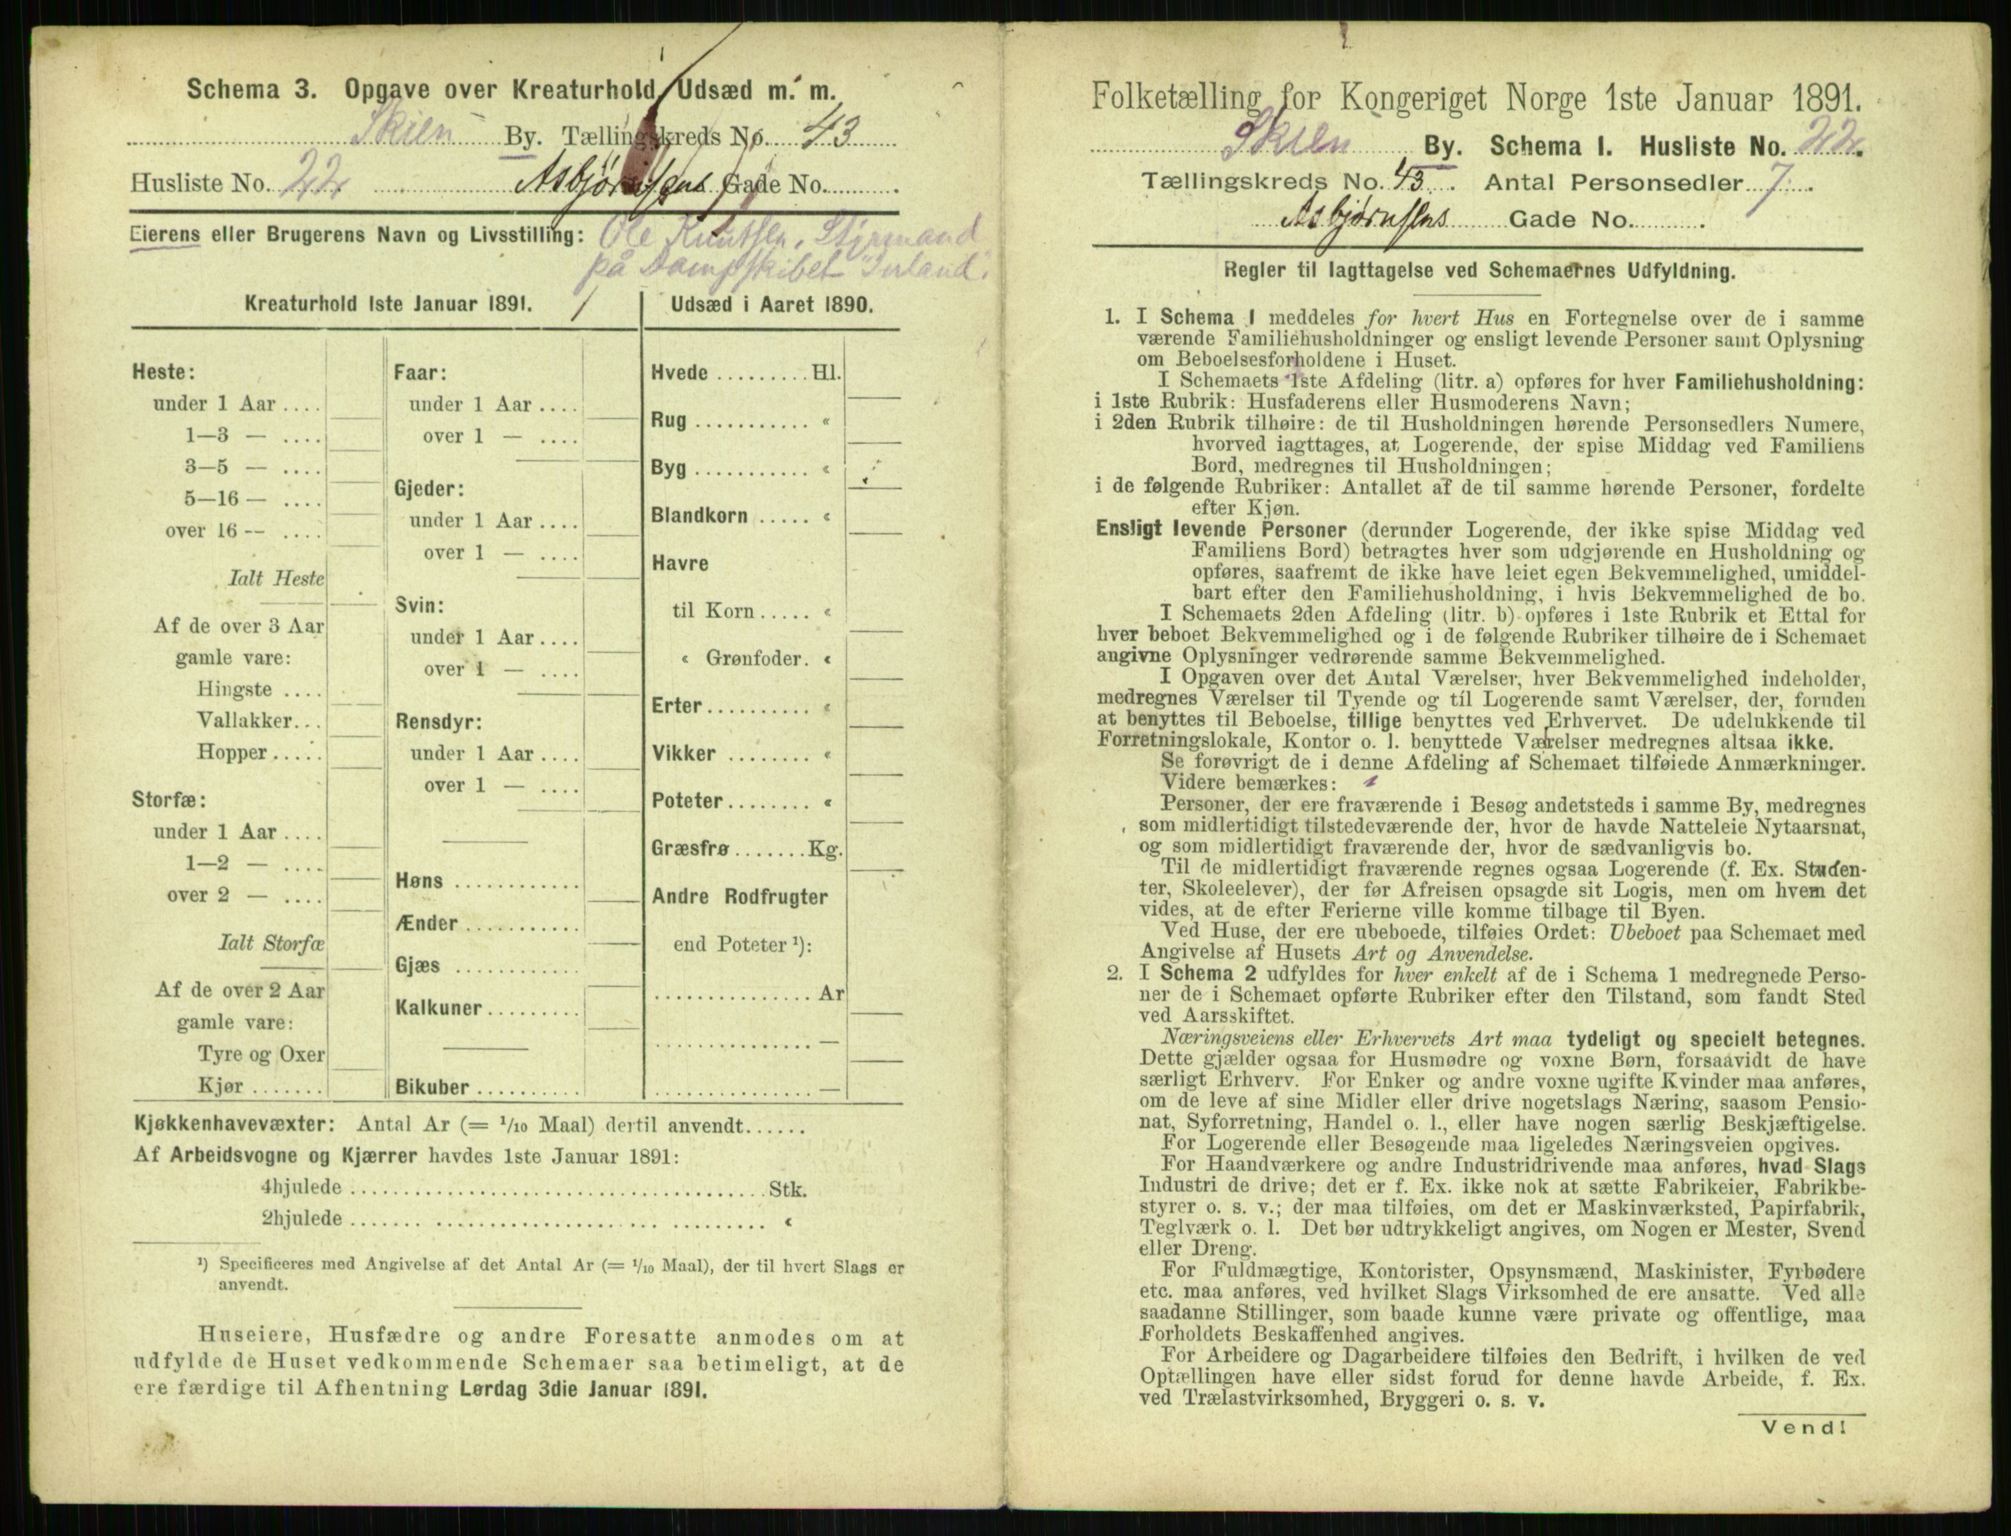 Schema 3. Opgave over Kreaturhold, Udsæd m. m.
Skien By. Tællingskreds No. 43
Husliste No. 22 Asbjørnsens Gade No.
Eierens eller Brugerens Navn og Livsstilling: Ole Knutsen, Styrmand
på Dampskibet "Irland".
Kreaturhold 1ste Januar 1891.
Heste:
under 1 Aar....
1—3 — ....
3—5 — ....
5—16 — ....
over 16 — ....
Ialt Heste
Af de over 3 Aar
gamle vare:
Hingste ....
Vallakker...
Hopper.....
Storfæ:
under 1 Aar....
1—2 — ....
over 2 — ....
Ialt Storfæ
Af de over 2 Aar
gamle vare:
Tyre og Oxer
Kjør.......
Faar:
under 1 Aar....
over 1 — ....
Gjeder:
under 1 Aar....
over 1 — ....
Svin:
under 1 Aar....
over 1 — ....
Rensdyr:
under 1 Aar....
over 1 — ....
Høns............
Ænder...........
Gjæs............
Kalkuner.........
Bikuber..........
Udsæd i Aaret 1890.
Hvede.........Hl.
Rug........... «
Byg........... «
Blandkorn..... «
Havre
til Korn..... «
« Grønfoder. «
Erter.......... «
Vikker........ «
Poteter........ «
Græsfrø.......Kg.
Andre Rodfrugter
end Poteter ¹):
...............Ar
............... —
............... —
Kjøkkenhavevæxter: Antal Ar (= 1/10 Maal) dertil anvendt......
Af Arbeidsvogne og Kjærrer havdes 1ste Januar 1891:
4hjulede........................................Stk.
2hjulede....... ................ ......... «
¹) Specificeres med Angivelse af det Antal Ar (= 1/10 Maal), der til hvert Slags er
anvendt.
Huseiere, Husfædre og andre Foresatte anmodes om at
udfylde de Huset vedkommende Schemaer saa betimeligt, at de
ere færdige til Afhentning Lørdag 3die Januar 1891.
Folketælling for Kongeriget Norge 1ste Januar 1891.
Skien By. Schema I. Husliste No. 22.
Tællingskreds No. 43. Antal Personsedler 7.
Asbjørnsens Gade No.
Regler til Iagttagelse ved Schemaernes Udfyldning.
1. I Schema 1 meddeles for hvert Hus en Fortegnelse over de i samme
værende Familiehusholdninger og ensligt levende Personer samt Oplysning
om Beboelsesforholdene i Huset.
I Schemaets 1ste Afdeling (litr. a) opføres for hver Familiehusholdning:
i 1ste Rubrik: Husfaderens eller Husmoderens Navn;
i 2den Rubrik tilhøire: de til Husholdningen hørende Personsedlers Numere,
hvorved iagttages, at Logerende, der spise Middag ved Familiens
Bord, medregnes til Husholdningen;
i de følgende Rubriker: Antallet af de til samme hørende Personer, fordelte
efter Kjøn.
Ensligt levende Personer (derunder Logerende, der ikke spise Middag ved
Familiens Bord) betragtes hver som udgjørende en Husholdning og
opføres, saafremt de ikke have leiet egen Bekvemmelighed, umiddel-
bart efter den Familiehusholdning, i hvis Bekvemmelighed de bo.
I Schemaets 2den Afdeling (litr. b) opføres i 1ste Rubrik et Ettal for
hver beboet Bekvemmelighed og i de følgende Rubriker tilhøire de i Schemaet
angivne Oplysninger vedrørende samme Bekvemmelighed.
I Opgaven over det Antal Værelser, hver Bekvemmelighed indeholder,
medregnes Værelser til Tyende og til Logerende samt Værelser, der, foruden
at benyttes til Beboelse, tillige benyttes ved Erhvervet. De udelukkende til
Forretningslokale, Kontor o. l. benyttede Værelser medregnes altsaa ikke.
Se forøvrigt de i denne Afdeling af Schemaet tilføiede Anmærkninger.
Videre bemærkes:
Personer, der ere fraværende i Besøg andetsteds i samme By, medregnes
som midlertidigt tilstedeværende der, hvor de havde Natteleie Nytaarsnat,
og som midlertidigt fraværende der, hvor de sædvanligvis bo.
Til de midlertidigt fraværende regnes ogsaa Logerende (f. Ex. Studen-
ter, Skoleelever), der før Afreisen opsagde sit Logis, men om hvem det
vides, at de efter Ferierne ville komme tilbage til Byen.
Ved Huse, der ere ubeboede, tilføies Ordet: Ubeboet paa Schemaet med
Angivelse af Husets Art og Anvendelse.
2. I Schema 2 udfyldes for hver enkelt af de i Schema 1 medregnede Perso-
ner de i Schemaet opførte Rubriker efter den Tilstand, som fandt Sted
ved Aarsskiftet.
Næringsveiens eller Erhvervets Art maa tydeligt og specielt betegnes.
Dette gjælder ogsaa for Husmødre og voxne Børn, forsaavidt de have
særligt Erhverv. For Enker og andre voxne ugifte Kvinder maa anføres,
om de leve af sine Midler eller drive nogetslags Næring, saasom Pensio-
nat, Syforretning, Handel o. l., eller have nogen særlig Beskjæftigelse.
For Logerende eller Besøgende maa ligeledes Næringsveien opgives.
For Haandværkere og andre Industridrivende maa anføres, hvad Slags
Industri de drive; det er f. Ex. ikke nok at sætte Fabrikeier, Fabrikbe-
styrer o. s. v.; der maa tilføies, om det er Maskinværksted, Papirfabrik,
Teglværk o. l. Det bør udtrykkeligt angives, om Nogen er Mester, Svend
eller Dreng.
For Fuldmægtige, Kontorister, Opsynsmænd, Maskinister, Fyrbødere
etc. maa anføres, ved hvilket Slags Virksomhed de ere ansatte. Ved alle
saadanne Stillinger, som baade kunne være private og offentlige, maa
Forholdets Beskaffenhed angives.
For Arbeidere og Dagarbeidere tilføies den Bedrift, i hvilken de ved
Optællingen have eller sidst forud for denne havde Arbeide, f. Ex.
ved Trælastvirksomhed, Bryggeri o. s. v.
Vend!